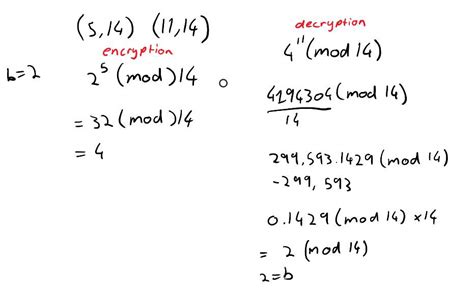 (5,14) (11,14)
encryption
b=2 2⁵ (mod)14
= 32 (mod)14
= 4
decryption
4¹¹ (mod 14)
4194304 (mod 14)
14
299,593.1429 (mod 14)
-299,593
0.1429 (mod 14) ×14
= 2 (mod 14)
2=b